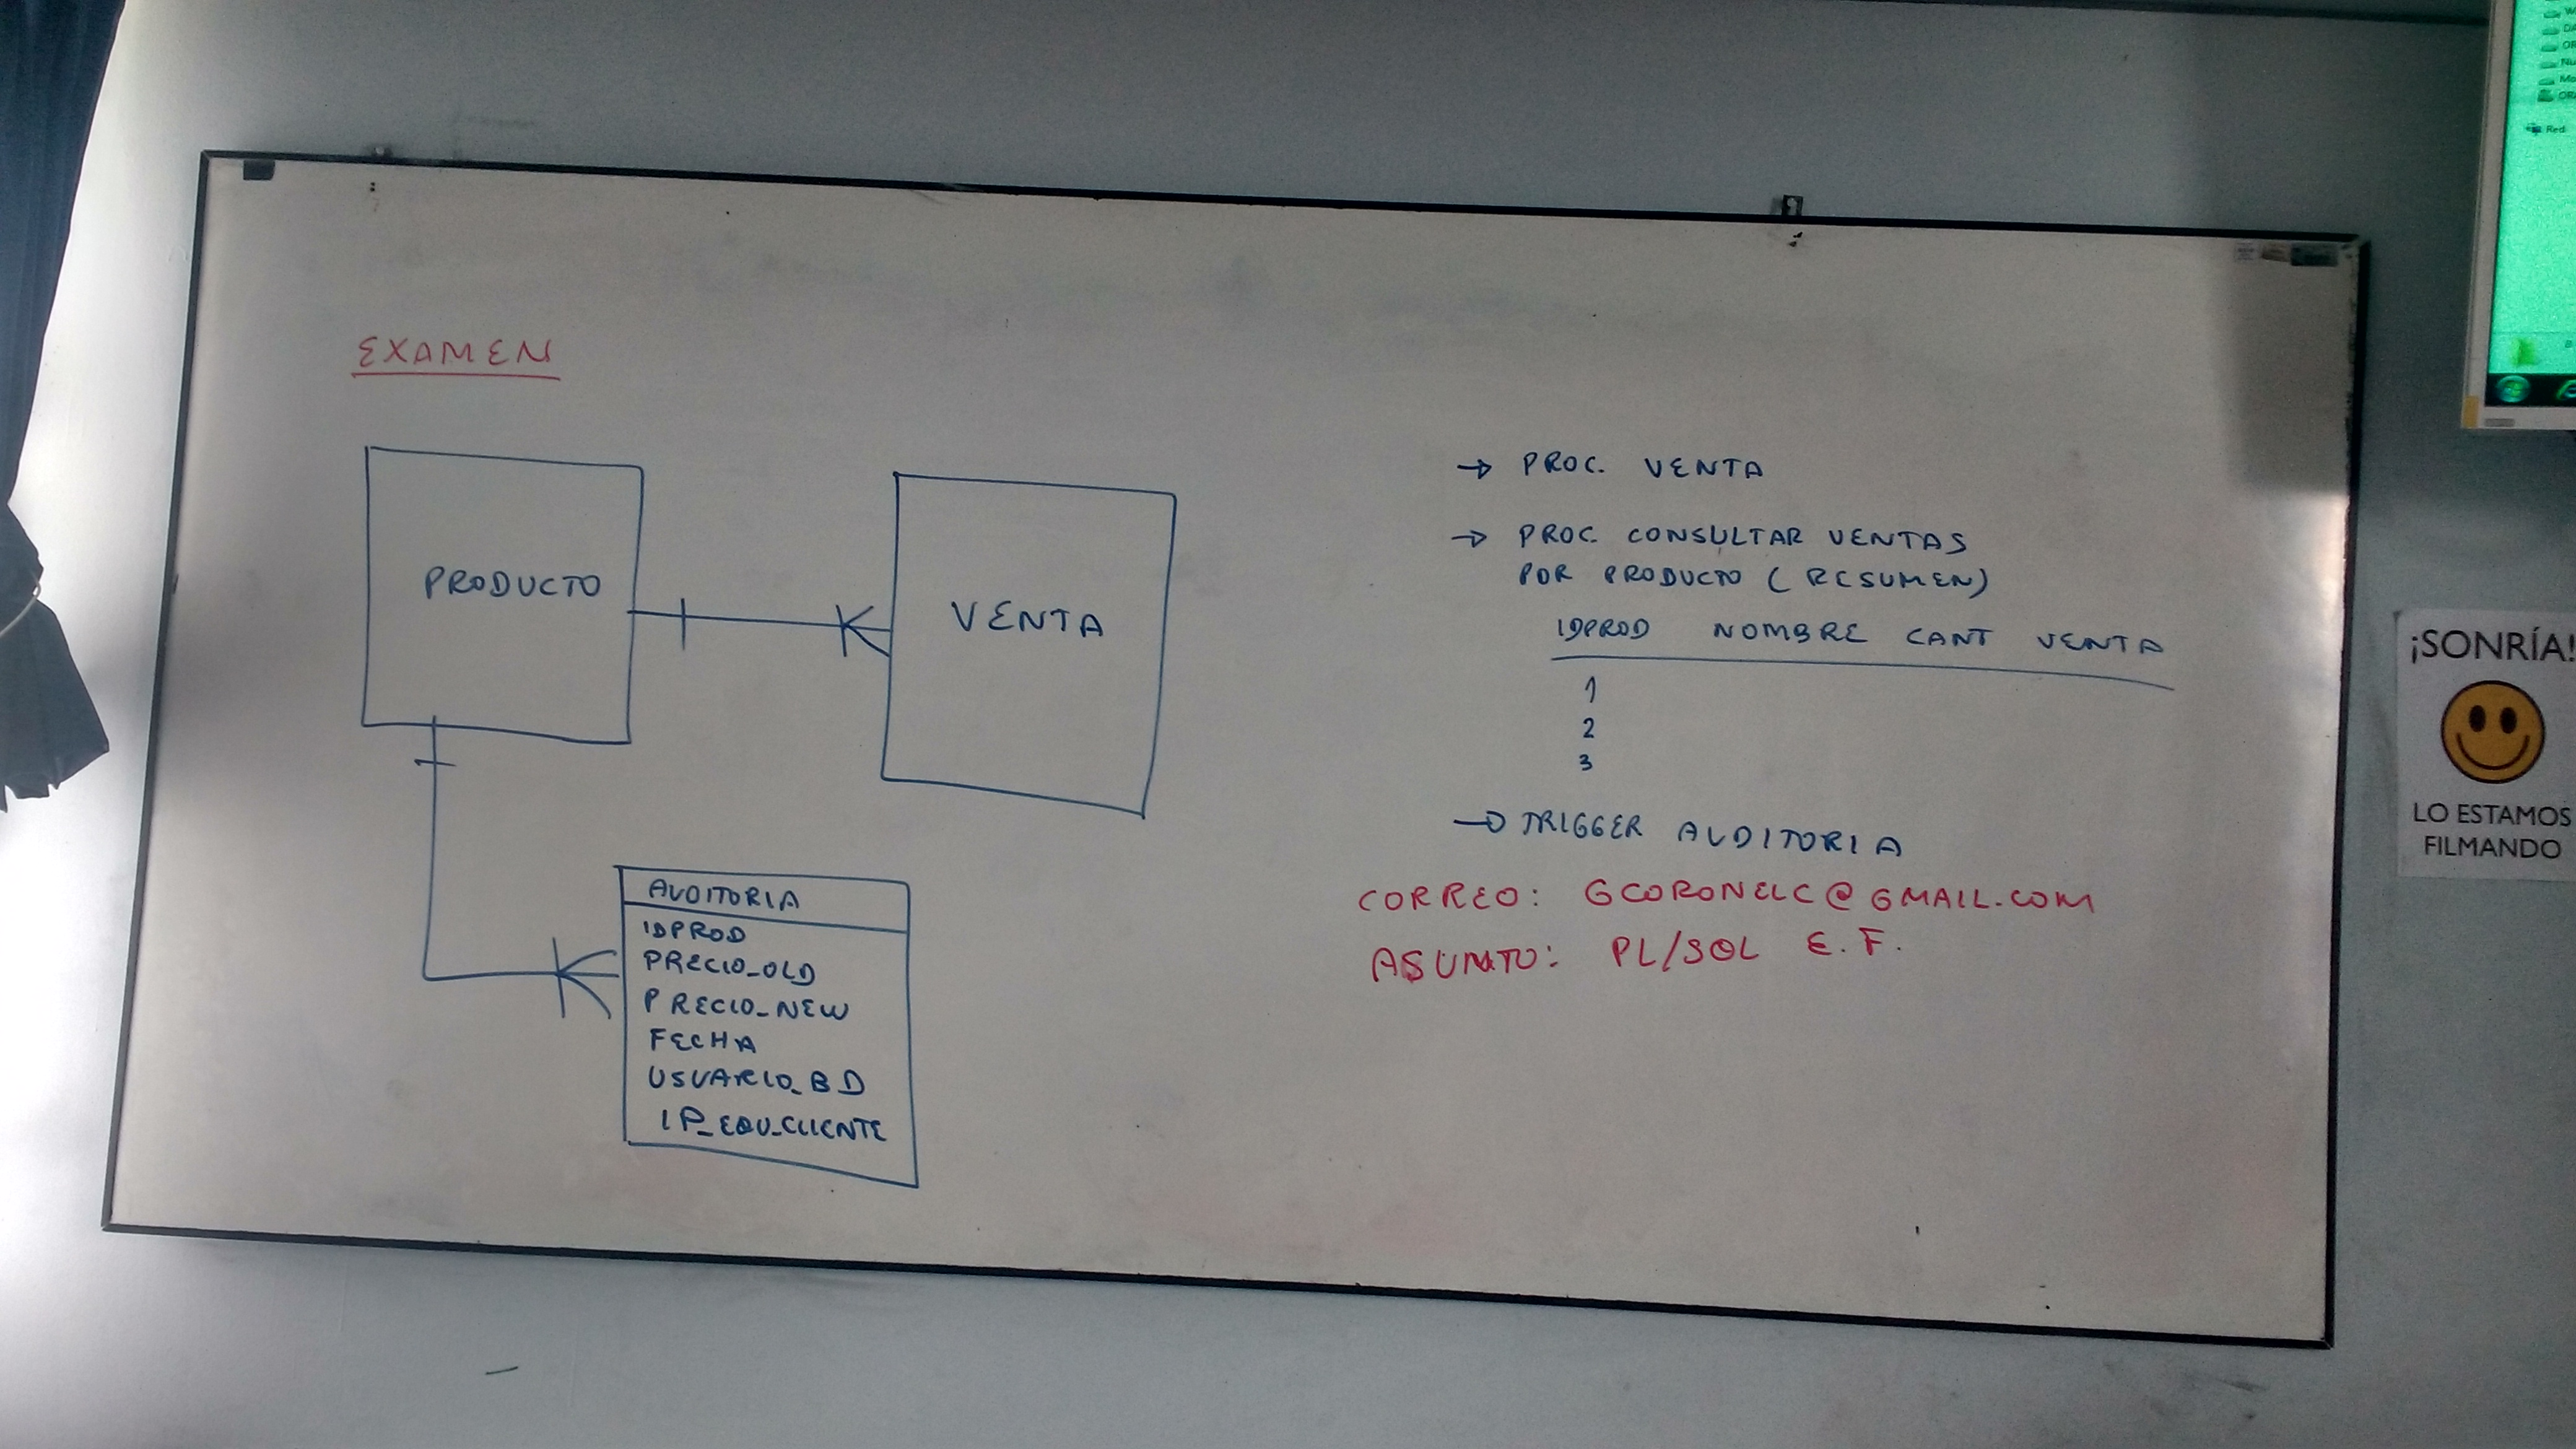 EXAMEN
PRODUCTO
VENTA
AUDITORIA
IDPROD
PRECIO_OLD
PRECIO_NEW
FECHA
USUARIO_BD
IP_EQU_CLIENTE
→ PROC. VENTA
→ PROC. CONSULTAR VENTAS
POR PRODUCTO (RESUMEN)
IDPROD NOMBRE CANT VENTA
1
2
3
→ TRIGGER AUDITORIA
CORREO: GCORONELC@GMAIL.COM
ASUNTO: PL/SQL E.F.
Red
¡SONRÍA!
LO ESTAMOS
FILMANDO